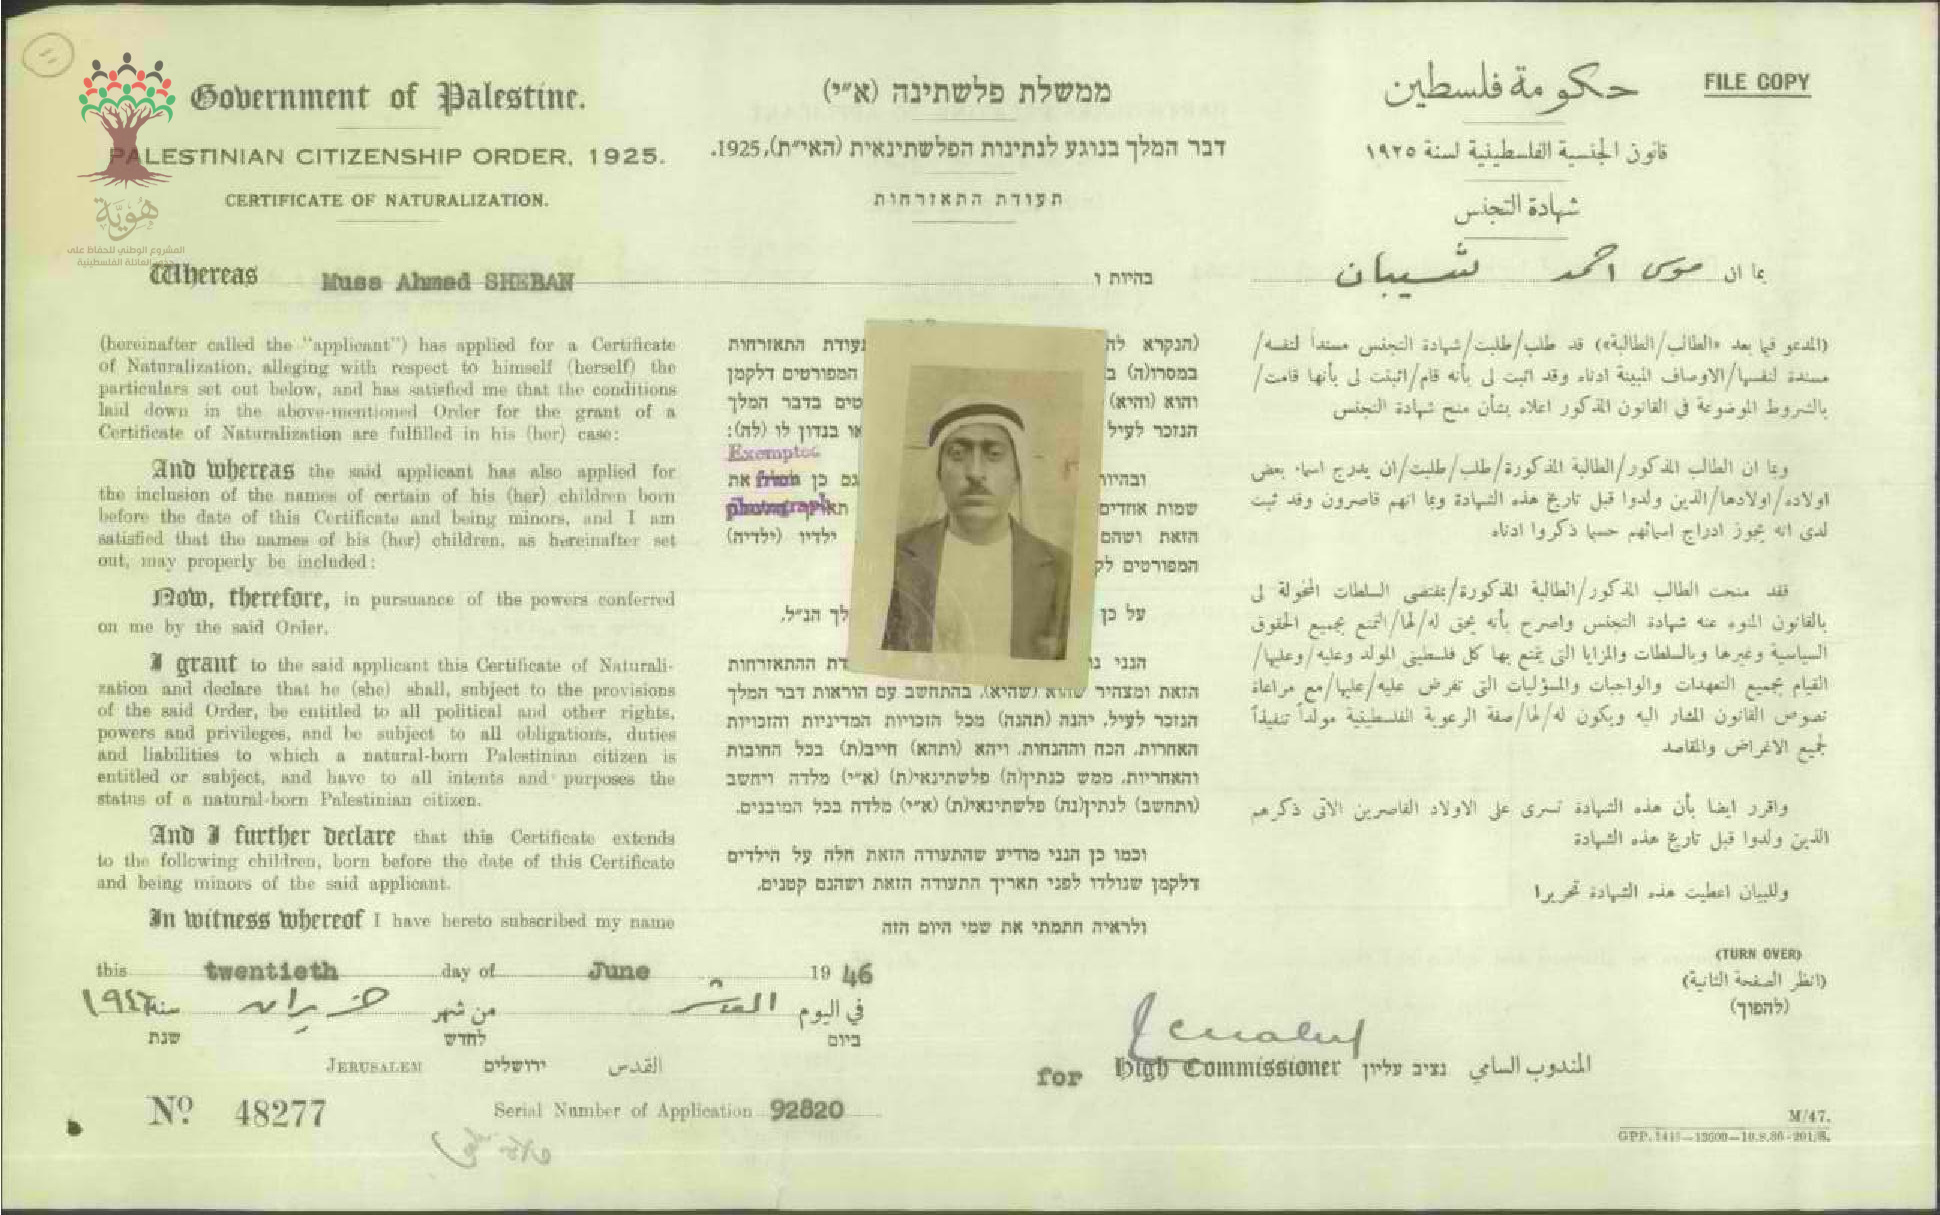 Government of Palestine.
PALESTINIAN CITIZENSHIP ORDER, 1925.
CERTIFICATE OF NATURALIZATION.
ממשלת פלשתינה (א״י)
דבר המלך בנוגע לנתינות הפלשתינאית (האי״ת), 1925.
תעודת התאזרחות
حكومة فلسطين
FILE COPY
قانون الجنسية الفلسطينية لسنة ١٩٢٥
شهادة التجنس
هُوِيَّة
المشروع الوطني للحفاظ على
جذور العائلة الفلسطينية
Whereas Musa Ahmed SHEBAN
(hereinafter called the "applicant") has applied for a Certificate
of Naturalization, alleging with respect to himself (herself) the
particulars set out below, and has satisfied me that the conditions
laid down in the above-mentioned Order for the grant of a
Certificate of Naturalization are fulfilled in his (her) case:
And whereas the said applicant has also applied for
the inclusion of the names of certain of his (her) children born
before the date of this Certificate and being minors, and I am
satisfied that the names of his (her) children, as hereinafter set
out, may properly be included:
Now, therefore, in pursuance of the powers conferred
on me by the said Order.
I grant to the said applicant this Certificate of Naturali-
zation and declare that he (she) shall, subject to the provisions
of the said Order, be entitled to all political and other rights,
powers and privileges, and be subject to all obligations, duties
and liabilities to which a natural-born Palestinian citizen is
entitled or subject, and have to all intents and purposes the
status of a natural-born Palestinian citizen.
And I further declare that this Certificate extends
to the following children, born before the date of this Certificate
and being minors of the said applicant.
In witness whereof I have hereto subscribed my name
בהיות ו
(הנקרא לה
תעודת התאזרחות
במסרו(ה) ב
המפורטים דלקמן
והוא (והיא)
טים בדבר המלך
הנזכר לעיל
או בנדון לו (לה):
Exempted
from
photograph
ובהיות
גם כן
את
שמות אחדים
הזאת ושהם
ילדיו (ילדיה)
המפורטים לק
על כן
לך הנ״ל.
הנני נו
דת ההתאזרחות
הזאת ומצהיר שהוא (שהיא), בהתחשב עם הוראות דבר המלך
הנזכר לעיל, יהנה (תהנה) מכל הזכויות המדיניות והזכויות
האחרות, הכח וההנחות, ויהא (ותהא) חייב(ת) בכל החובות
והאחריות, ממש כנתין(ה) פלשתינאי(ת) (א״י) מלדה ויחשב
(ותחשב) לנתין(נה) פלשתינאי(ת) (א״י) מלדה בכל המובנים.
וכמו כן הנני מודיע שהתעודה הזאת חלה על הילדים
דלקמן שנולדו לפני תאריך התעודה הזאת ושהנם קטנים.
ולראיה חתמתי את שמי היום הזה
بما ان موسى احمد شيبان
(المدعو فيما بعد «الطالب/الطالبة») قد طلب/طلبت/شهادة التجنس مسنداً لنفسه/
مسندة لنفسها/الاوصاف المبينة ادناه وقد اثبت لي بأنه قام/اثبتت لي بأنها قامت/
بالشروط الموضوعة في القانون المذكور اعلاه بشأن منح شهادة التجنس
وبما ان الطالب المذكور/الطالبة المذكورة/طلب/طلبت/ان يدرج اسماء بعض
اولاده/اولادها/الذين ولدوا قبل تاريخ هذه الشهادة وبما انهم قاصرون وقد ثبت
لدى انه يجوز ادراج اسمائهم حسبما ذكروا ادناه
فقد منحت الطالب المذكور/الطالبة المذكورة/بمقتضى السلطات المخولة لي
بالقانون المنوه عنه شهادة التجنس واصرح بأنه يحق له/لها/التمتع بجميع الحقوق
السياسية وغيرها وبالسلطات والمزايا التي يتمتع بها كل فلسطيني المولد وعليه/وعليها/
القيام بجميع التعهدات والواجبات والمسؤليات التي تفرض عليه/عليها/مع مراعاة
نصوص القانون المشار اليه ويكون له/لها/صفة الرعوية الفلسطينية مولداً تنفيذاً
لجميع الاغراض والمقاصد
واقرر ايضا بأن هذه الشهادة تسرى على الاولاد القاصرين الآتي ذكرهم
الذين ولدوا قبل تاريخ هذه الشهادة
وللبيان اعطيت هذه الشهادة تحريرا
(TURN OVER)
(انظر الصفحة الثانية)
(להפוך)
this twentieth day of June 1946
في اليوم العشر من شهر حزيران سنة ١٩٤٦
ביום לחדש שנת
JERUSALEM ירושלים القدس
for High Commissioner נציב עליון المندوب السامي
Nº 48277
Serial Number of Application 92820
M/47.